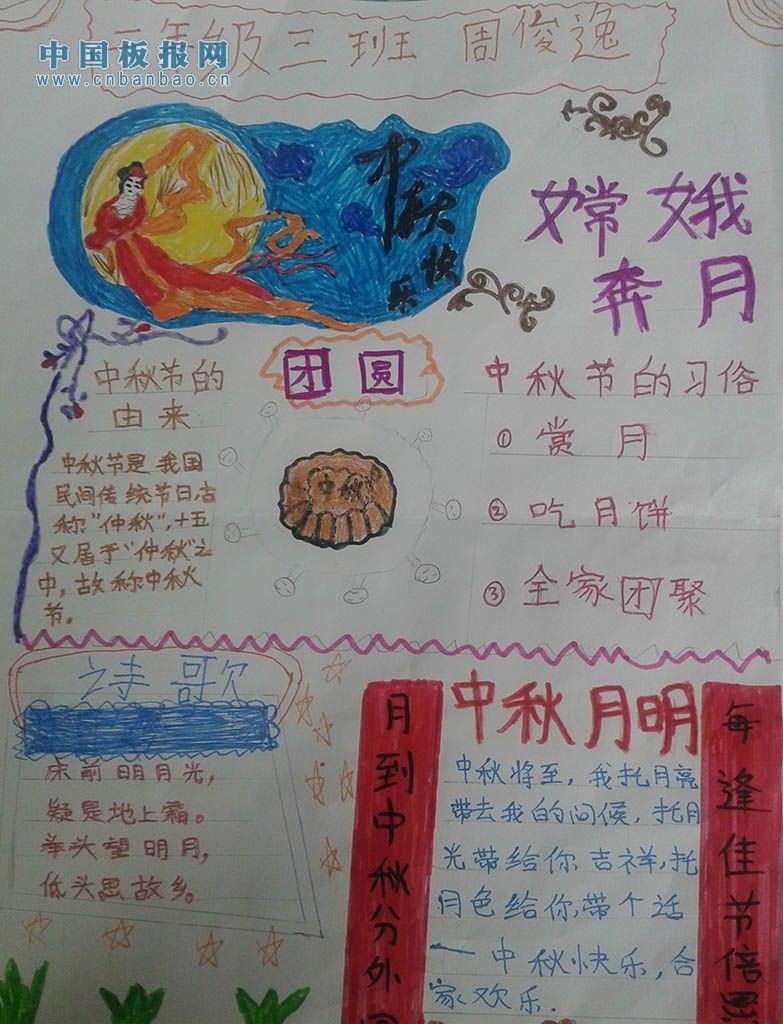 中国板报网
www.cnbanbao.cn
年级三班 周俊逸
中秋快乐
嫦娥
奔月
中秋节的
由来
中秋节是我国
民间传统节日,古
称"仲秋",十五
又居于"仲秋"之
中,故称中秋
节。
团圆
中秋
中秋节的习俗
①赏月
②吃月饼
③全家团聚
诗歌
床前明月光,
疑是地上霜。
举头望明月,
低头思故乡。
月到中秋分外
中秋月明
中秋将至,我托月亮
带去我的问候,托月
光带给你吉祥,托
月色给你带个话
一中秋快乐,合
家欢乐.
每逢佳节倍思